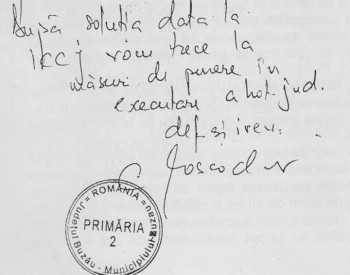 După soluția dată la
ICCJ vom trece la
măsuri de punere în
executare a hot. jud.
def. și irev.
ROMÂNIA
Județul Buzău - Municipiul Buzău
PRIMĂRIA
2